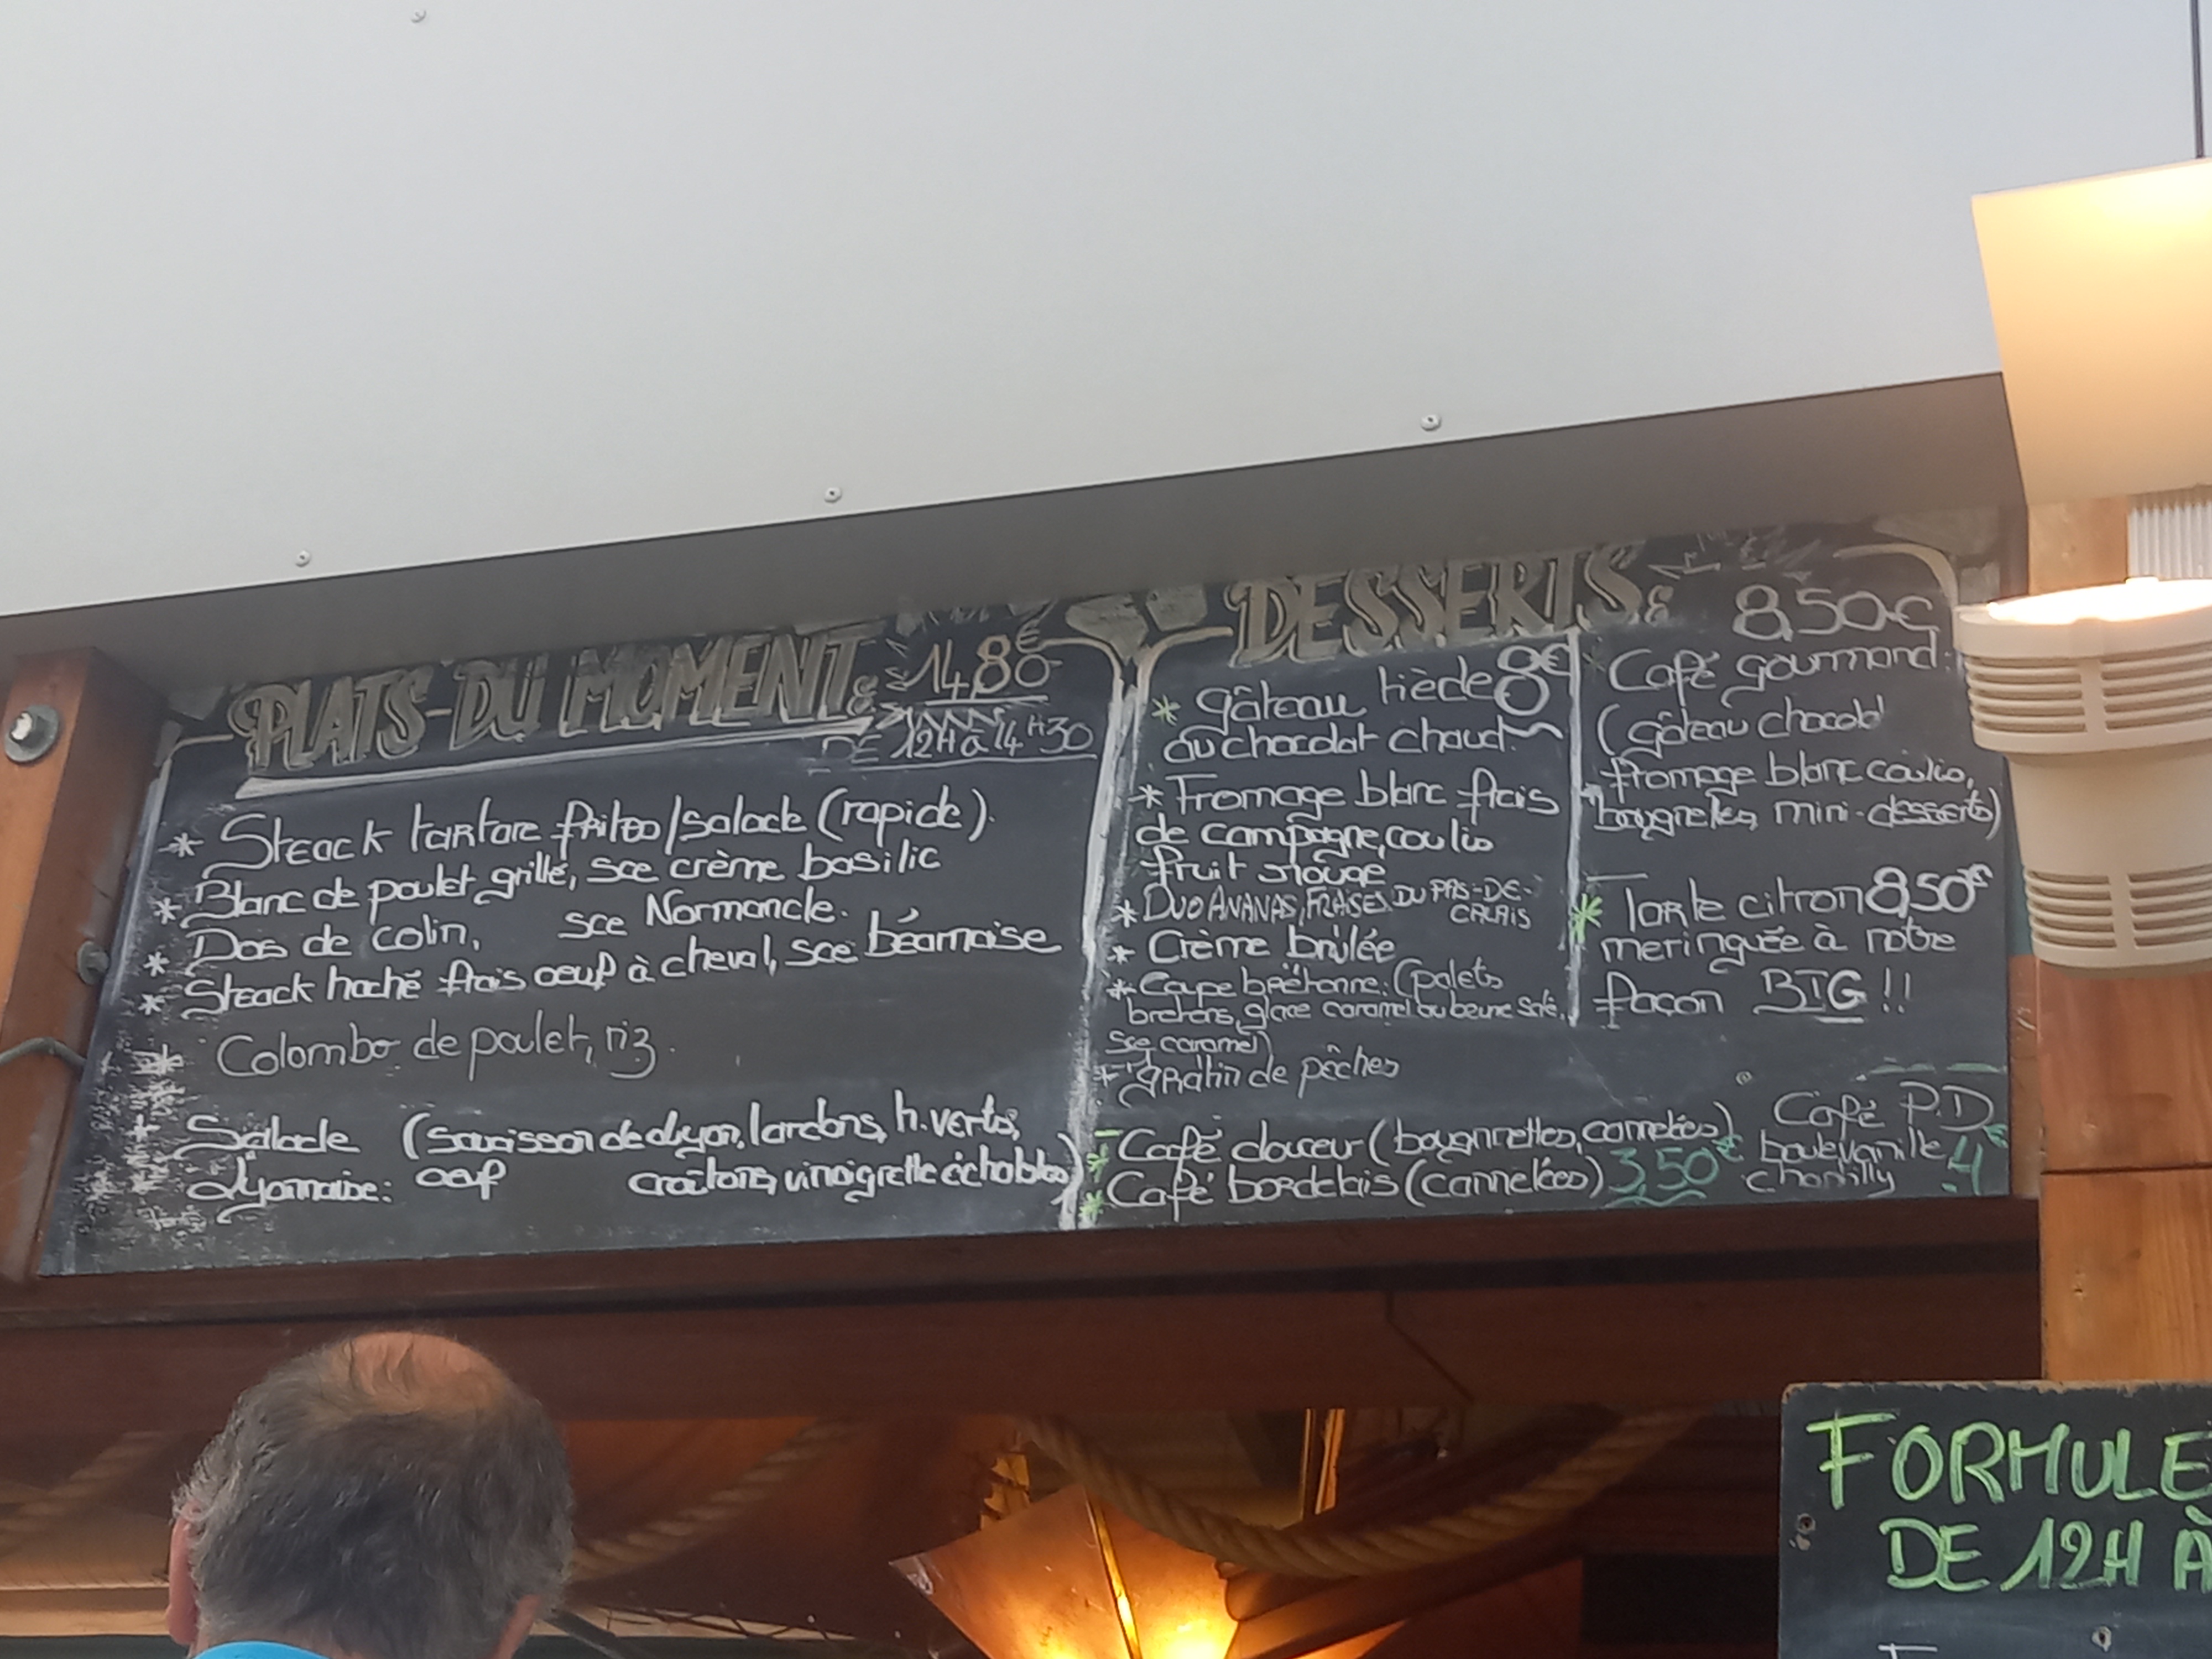 PLATS-DU MOMENT: 14,80€
DE 12H à 14H30
* Steack tartare frites/salade (rapide).
* Blanc de poulet grillé, sce crème basilic
* Dos de colin, sce Normande.
* Steack haché frais oeuf à cheval, sce béarnaise
* Colombo de poulet, riz.
* Salade (saucisson de Lyon, lardons, h. verts,
Lyonnaise: oeuf croûtons, vinaigrette échalotes)
DESSERTS:
* Gâteau tiède 8€
au chocolat chaud.
* Fromage blanc frais
de campagne, coulis
fruit rouge
* DUO ANANAS, FRAISES DU PAS-DE-
CALAIS
* Crème brûlée
* Coupe brêtonne: (palets
bretons, glace caramel au beurre salé,
sce caramel)
* gratin de pêches
8,50€
* Café gourmand:
(gâteau chocolat
fromage blanc coulis,
mini-desserts)
* Tarte citron 8,50€
meringuée à notre
façon BIG!!
* Café douceur (cannelées)
* Café bordelais (cannelées) 3,50€
Café P.D
boule vanille 4€
chantilly
FORMULE
DE 12H À